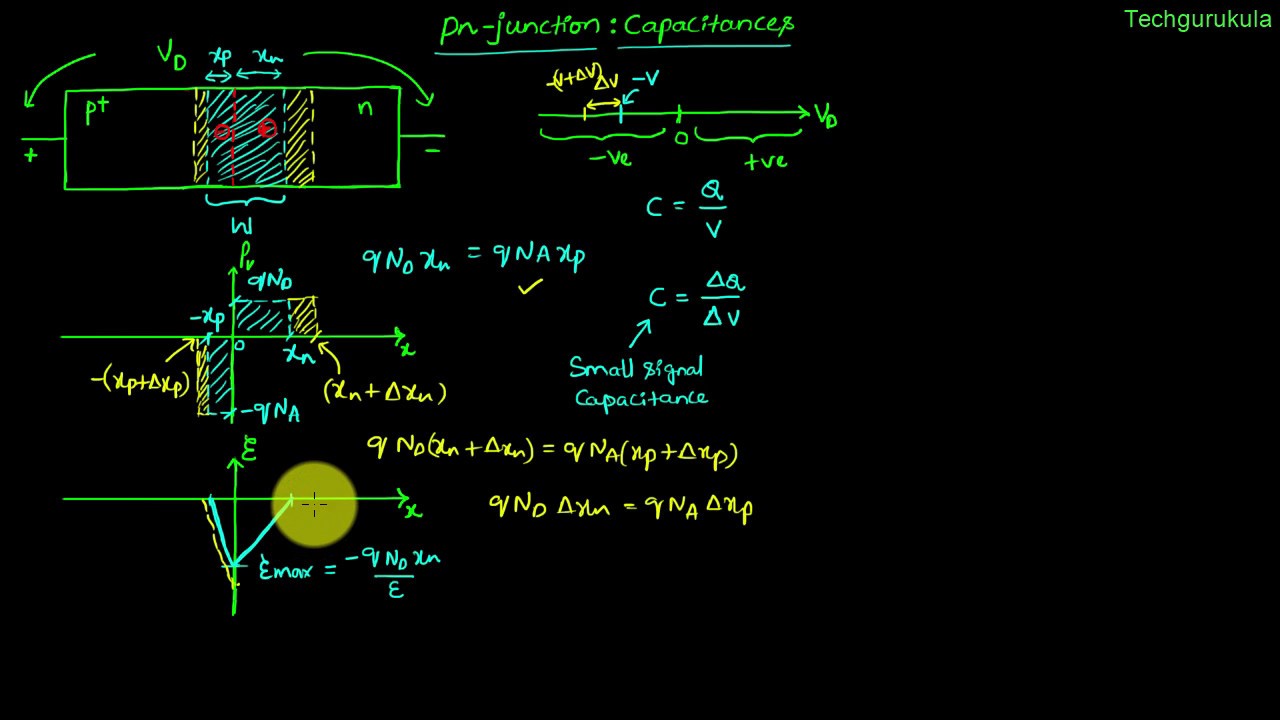 Techgurukula
pn-junction : Capacitances
V_D
xp
xn
p+
n
+
−
W
-(V+ΔV)
ΔV
-V
V_D
0
-ve
+ve
C = Q/V
ρv
qN_D
-xp
0
xn
x
-(xp+Δxp)
(xn+Δxn)
-qN_A
qN_D xn = qN_A xp ✓
C = ΔQ/ΔV
Small signal
Capacitance
qN_D(xn+Δxn) = qN_A(xp+Δxp)
qN_D Δxn = qN_A Δxp
ξ
x
ξmax = -qN_D xn/ε